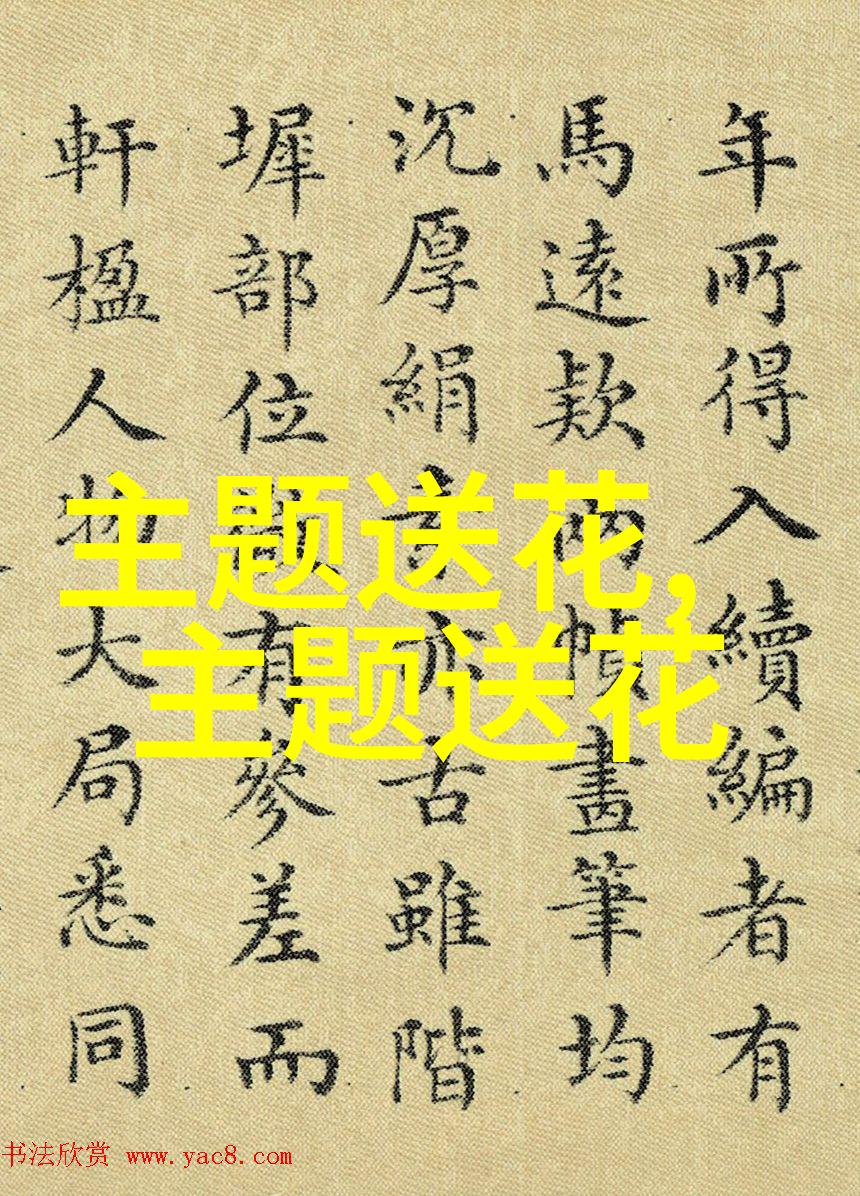 年所得入續編者有
馬遠欵兩幀畫筆均
沉厚絹素亦古雖階
墀部位有參差而
軒楹人物大局悉同
主题送花,
主题送花
书法欣赏 www.yac8.com